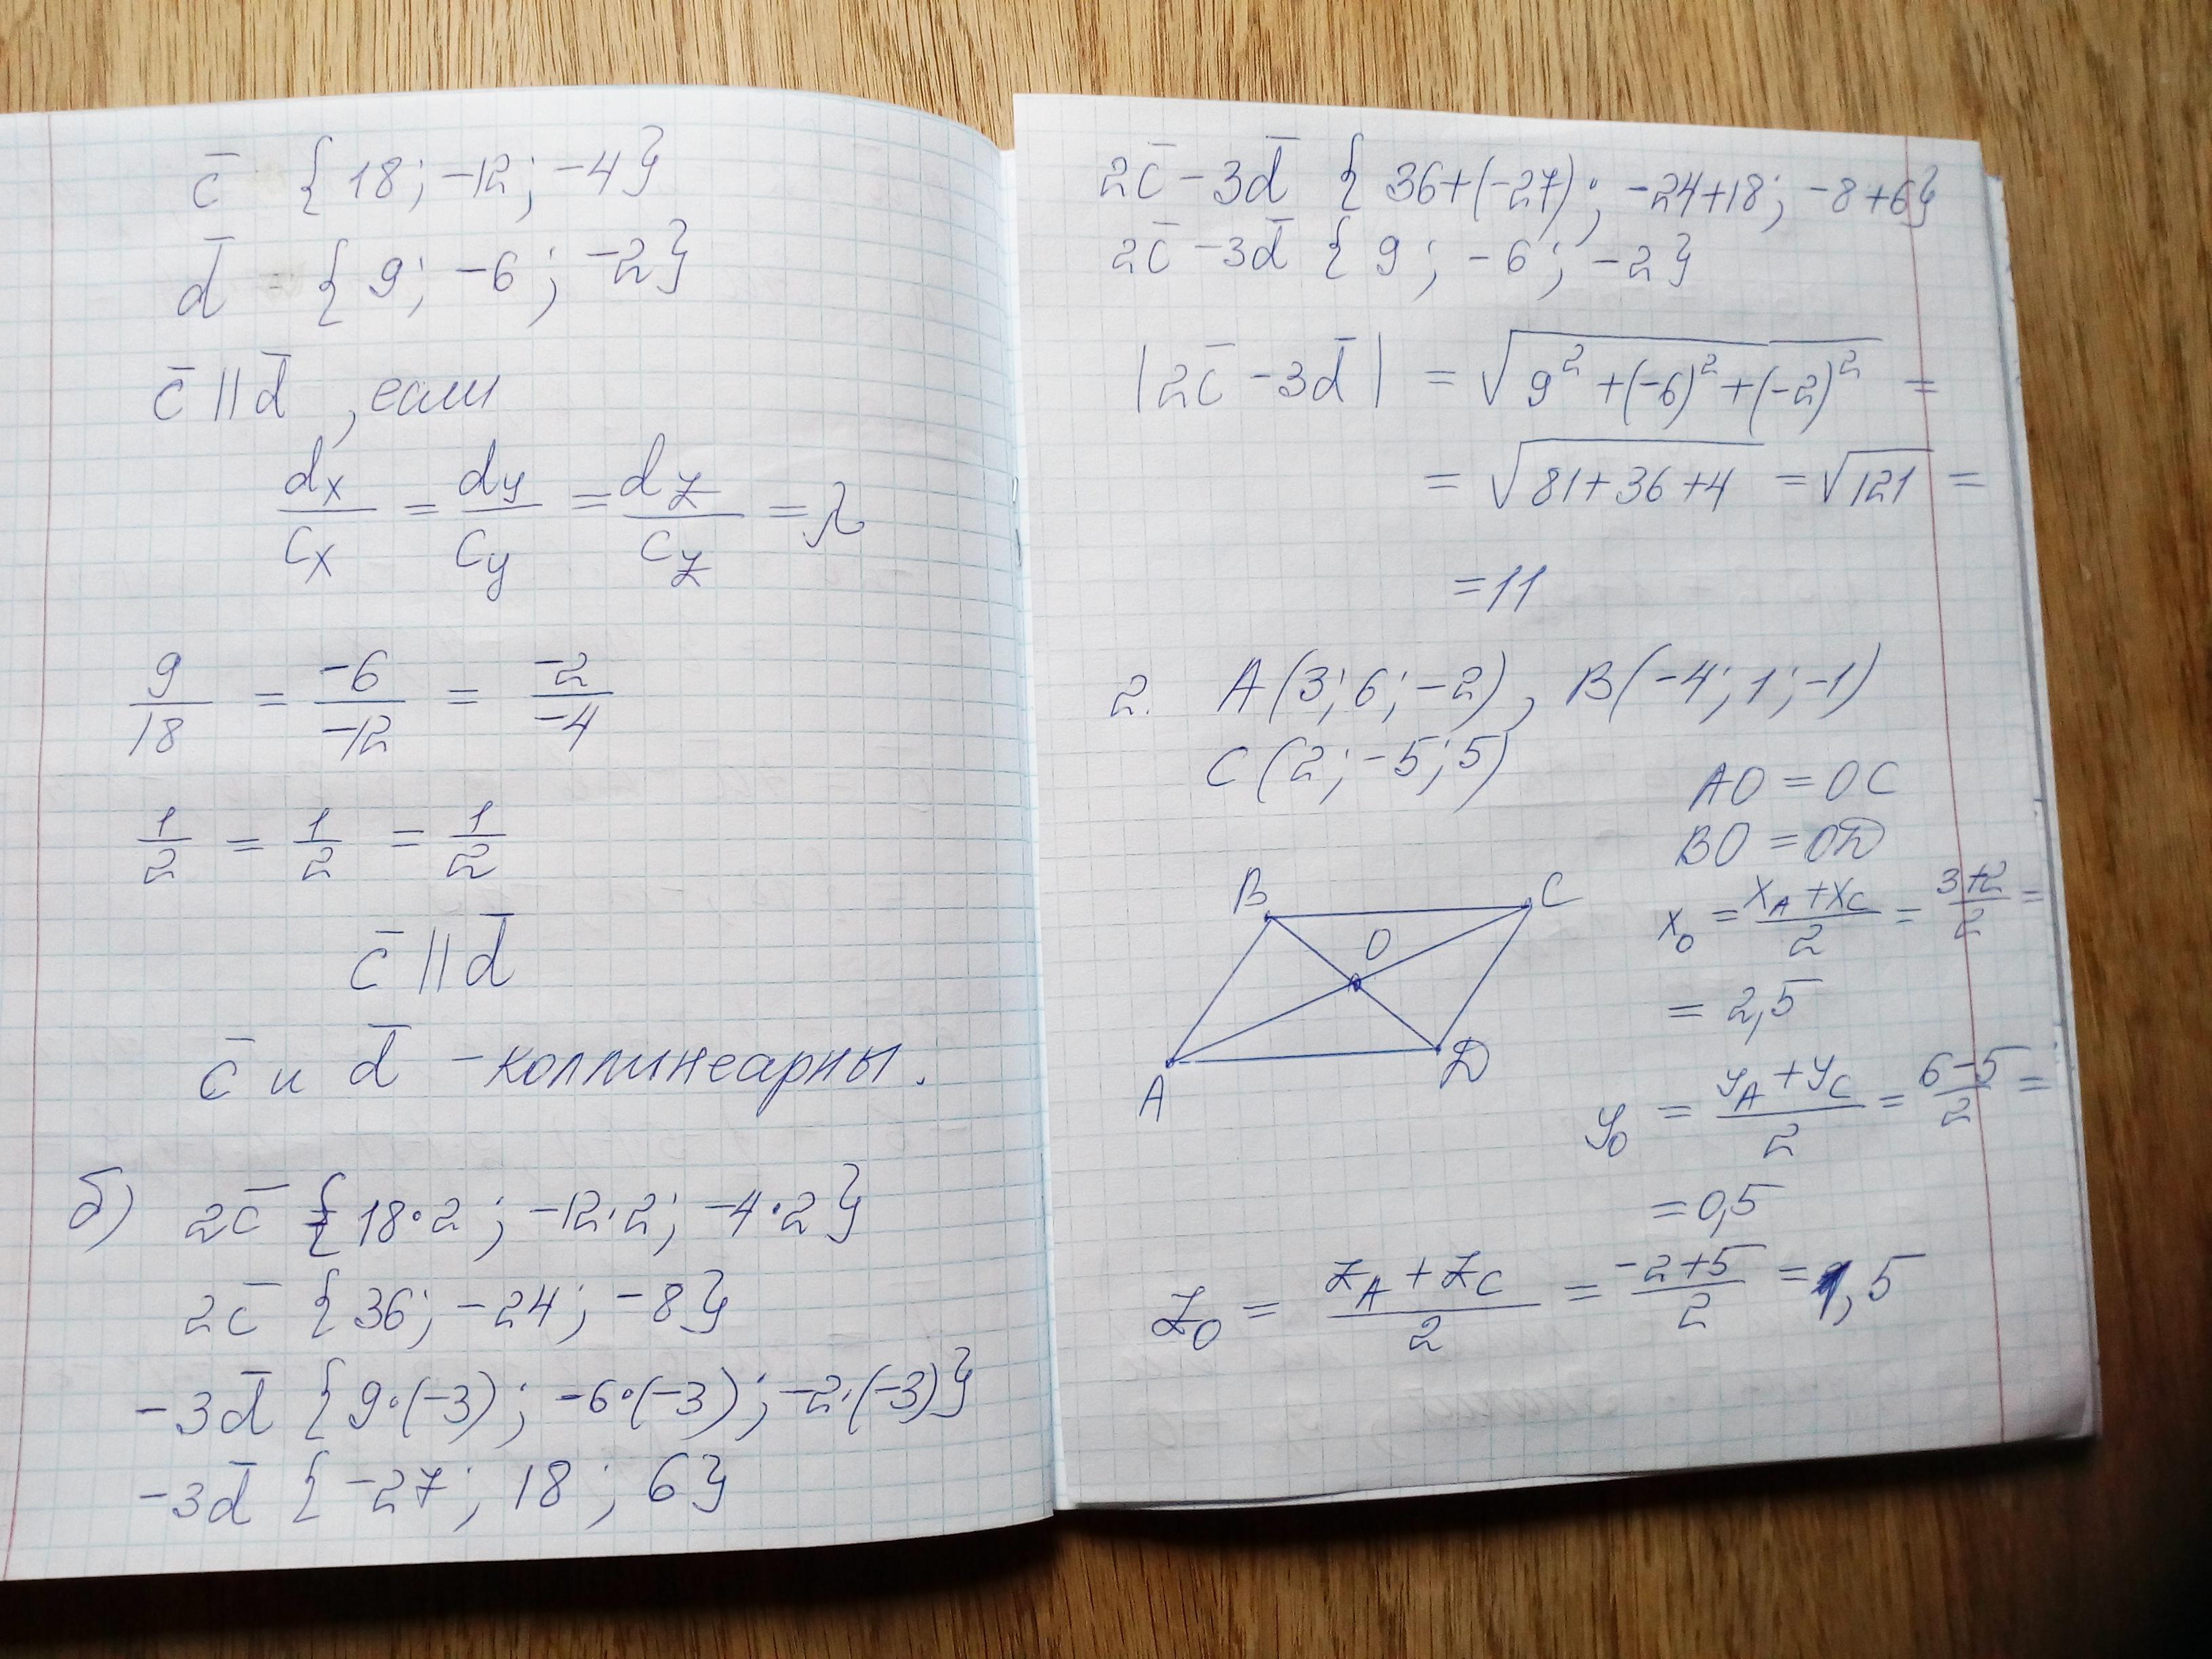 c̄ {18; -12; -4}
d̄ {9; -6; -2}
c̄ || d̄, если
dx/cx = dy/cy = dz/cz = λ
9/18 = -6/-12 = -2/-4
1/2 = 1/2 = 1/2
c̄ || d̄
c̄ и d̄ - коллинеарны.
б) 2c̄ {18·2; -12·2; -4·2}
2c̄ {36; -24; -8}
-3d̄ {9·(-3); -6·(-3); -2·(-3)}
-3d̄ {-27; 18; 6}
2c̄ -3d̄ {36+(-27); -24+18; -8+6}
2c̄ -3d̄ {9; -6; -2}
|2c̄ -3d̄| = √(9²+(-6)²+(-2)²) =
= √(81+36+4) = √121 =
= 11
2. A(3; 6; -2), B(-4; 1; -1)
C(2; -5; 5)
AO = OC
BO = OD
x₀ = (x_A + x_C)/2 = (3+2)/2 =
= 2,5
B C
O
A D
y₀ = (y_A + y_C)/2 = (6-5)/2 =
= 0,5
z₀ = (z_A + z_C)/2 = (-2+5)/2 = 1,5